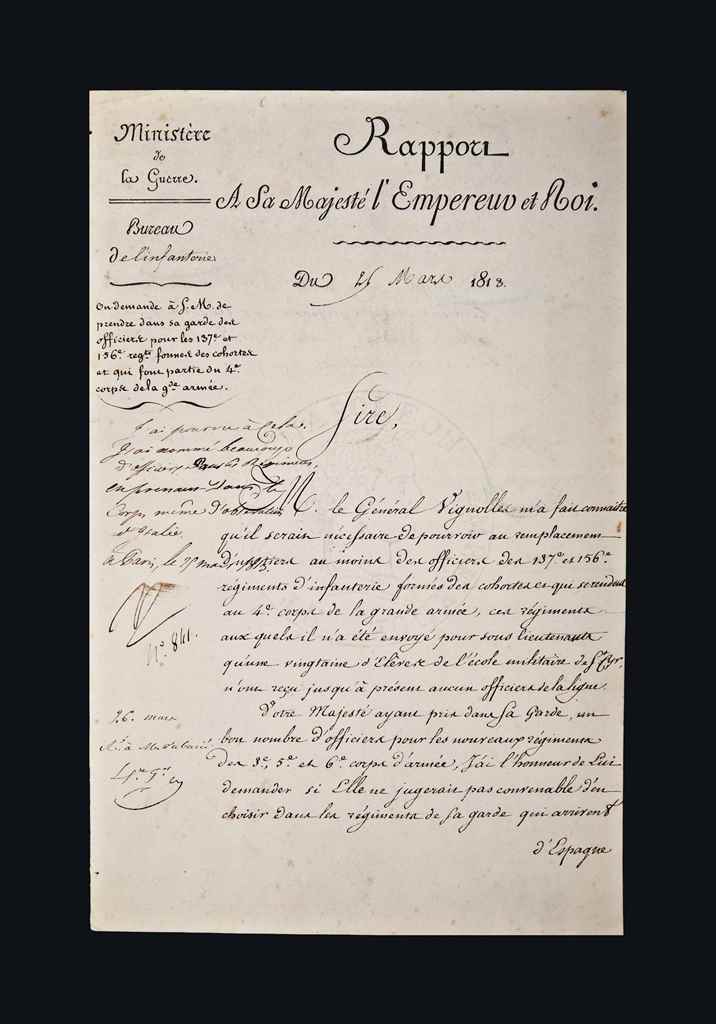 Ministère
de
la Guerre.
Bureau
de l'infanterie
On demande à S. M. de
prendre dans sa garde des
officiers pour les 137e et
156e regts formés des cohortes
et qui font partie du 4e
corps de la gde armée.
Rapport
A Sa Majesté l'Empereur et Roi.
Du Mars 1813.
Sire,
J'ai pourvu à cela.
J'ai nommé beaucoup
d'officiers dans ces Régimens,
en prenant dans le
Corps même d'observation
d'Italie
à Paris, le mars 1813.
No. 841.
26. mars
M. le Général Vignolles m'a fait connaitre
qu'il serait nécessaire de pourvoir au remplacement
au moins des officiers des 137e et 156e
régiments d'infanterie formés des cohortes et qui se rendent
au 4e corps de la grande armée, ces régiments
aux quels il n'a été envoyé pour sous lieutenants
qu'une vingtaine d'Elèves de l'école militaire de St Cyr,
n'ont reçu jusqu'à présent aucun officiers de la ligne.
Votre Majesté ayant pris dans Sa Garde, un
bon nombre d'officiers pour les nouveaux régiments
des 3e, 5e et 6e corps d'armée, J'ai l'honneur de Lui
demander si Elle ne jugerait pas convenable d'en
choisir dans les régiments de Sa garde qui arrivent
d'Espagne